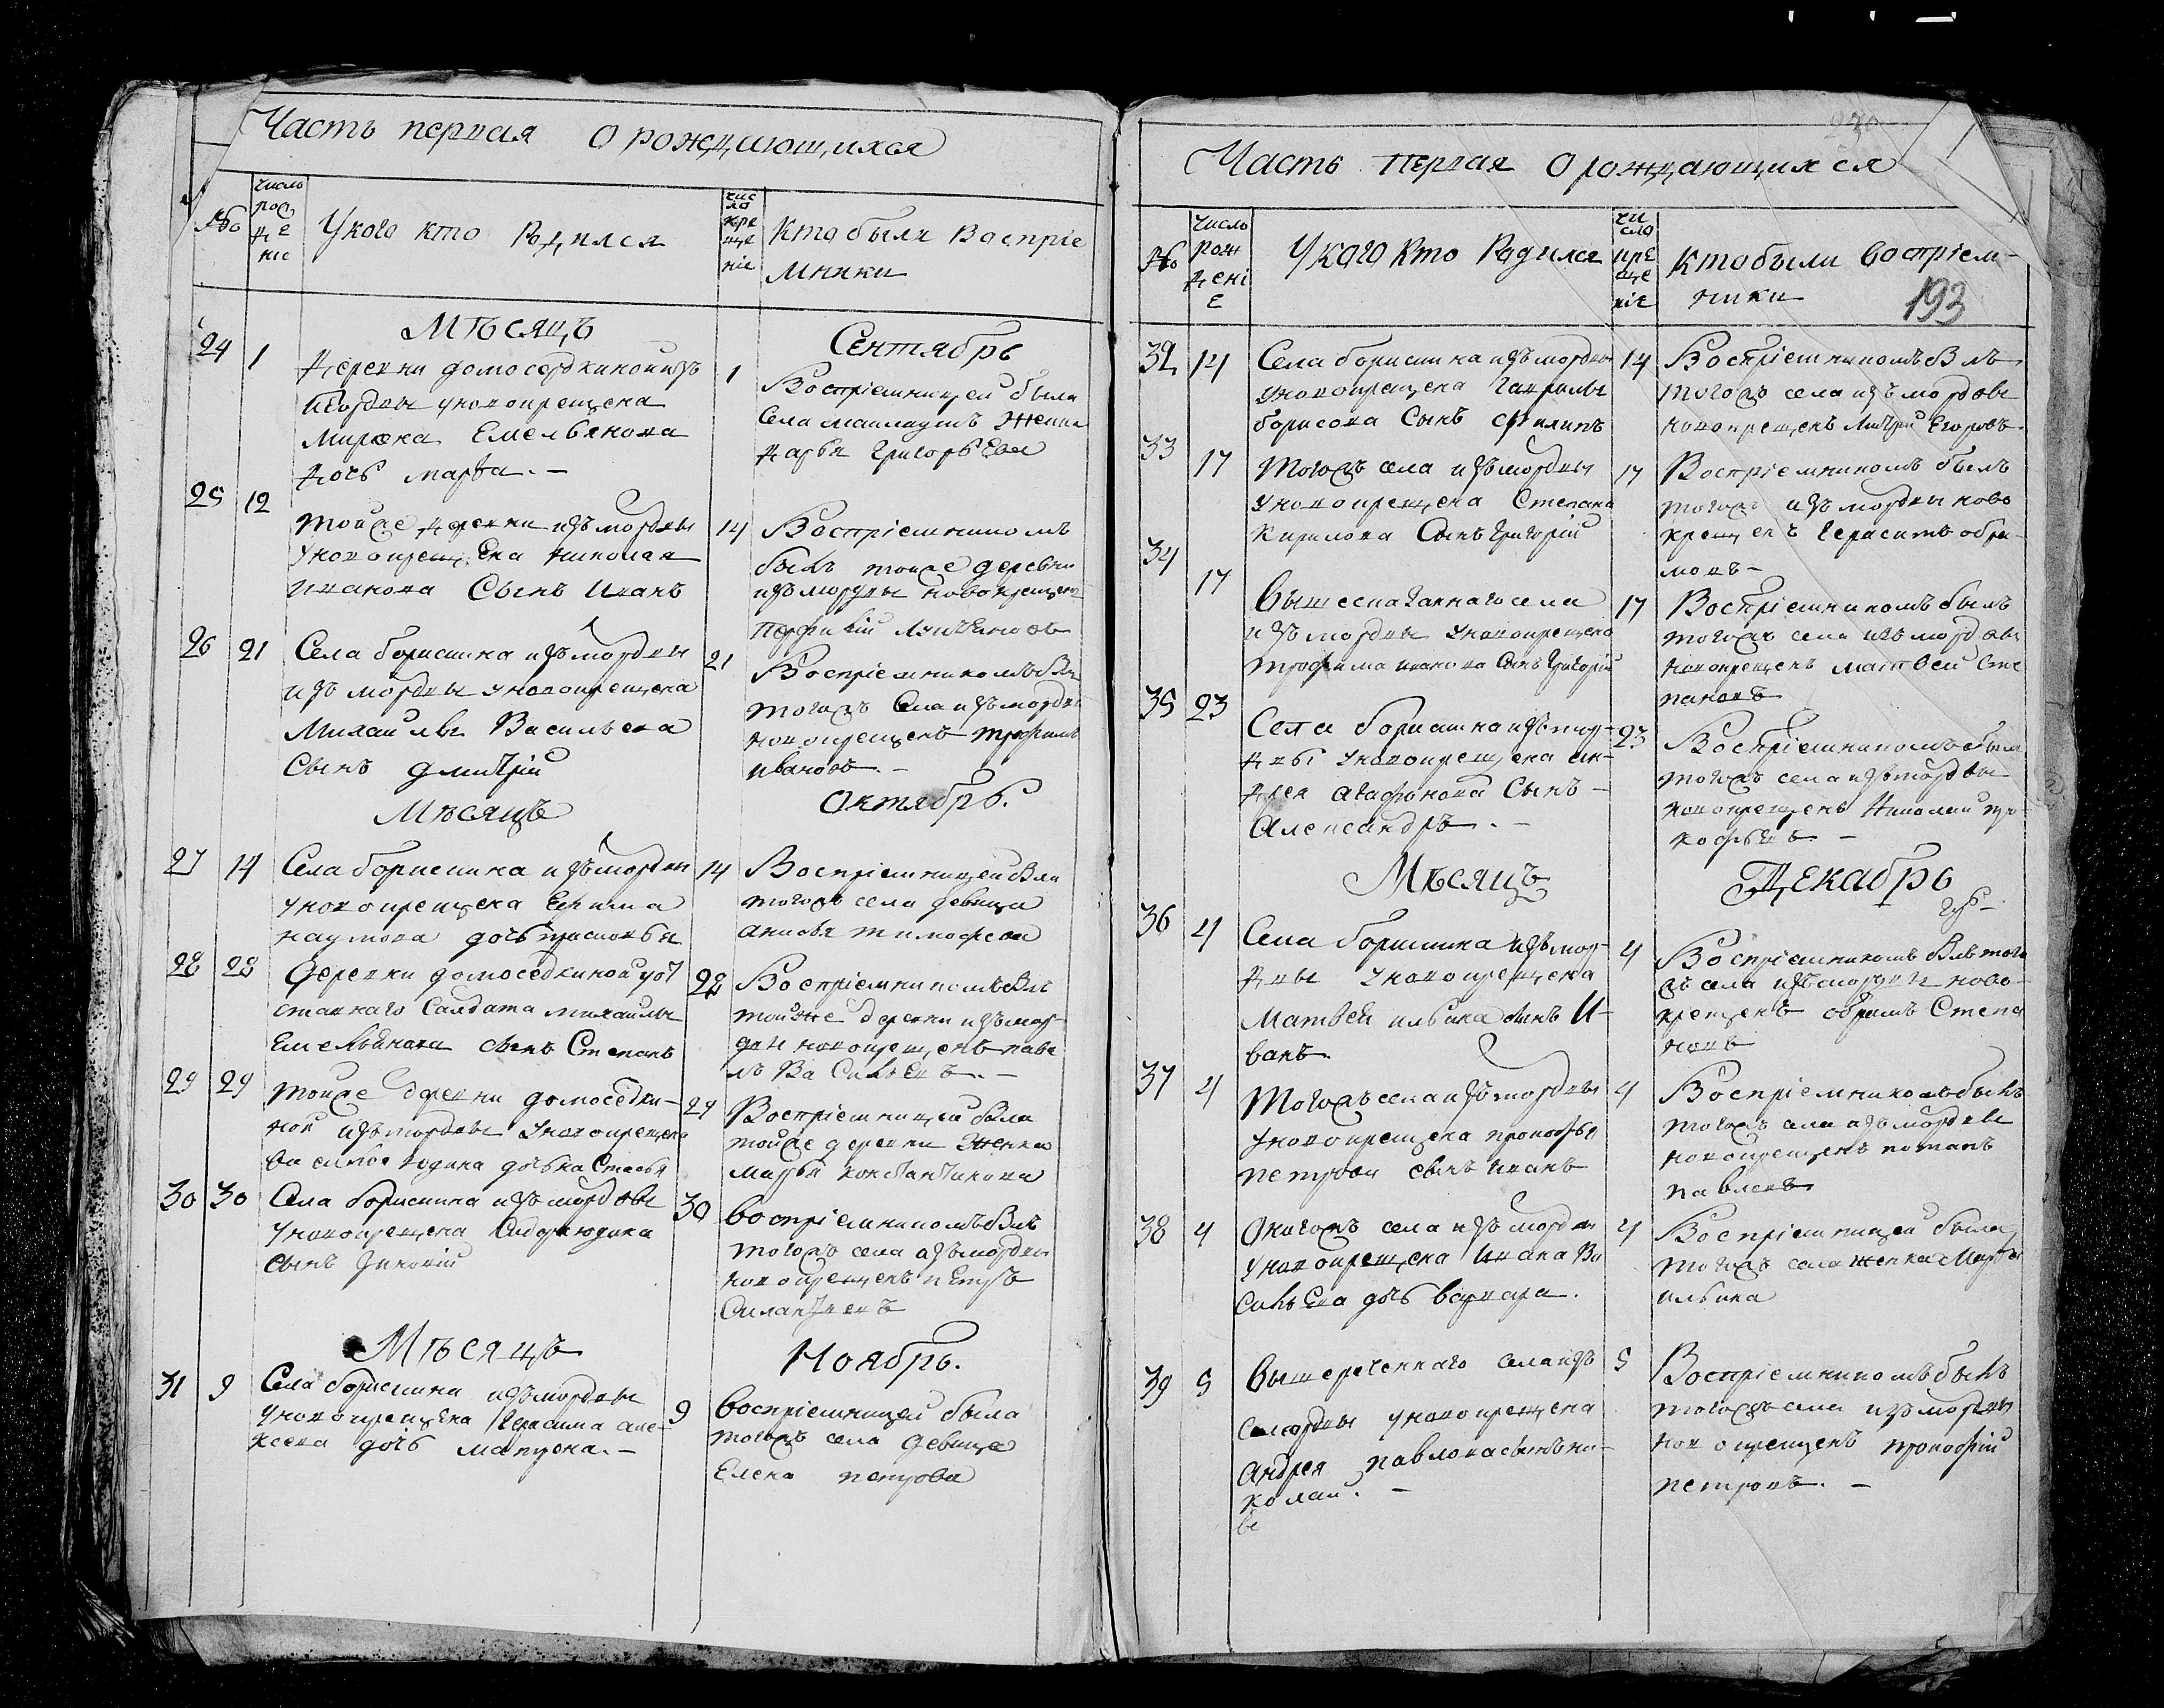 Часть первая о рождающихся
№
число рождение
У кого кто родился
число крещение
Кто были восприе
мники
Мѣсяцъ
Сентябрь
24
1
деревни домосердкиной изъ
мордвы у новокрещена
Мирона Емельянова
дочь марфа. –
1
Воспріемницей была
Села
Дарья Григорьева
25
12
тойже деревни изъ мордвы
у новокрещена николая
иванова Сынъ Иванъ
14
Воспріемникомъ
былъ тойже деревни
изъ мордвы новокрещенъ
26
21
Села борисшна изъ мордвы
изъ мордвы у новокрещена
Михаилы Васильева
Сынъ дмитрій
21
Воспріемникомъ былъ
тогожъ Села изъ мордвы
новокрещенъ трофимъ
ивановъ. –
Мѣсяцъ
Октябрь.
27
14
Села изъ мордвы
у новокрещена
наумова дочь
14
Воспріемницей была
тогожъ села девица
анисья тимофеева
28
28
Деревни домоседкиной уот
ставнаго Салдата михаилы
Емельянова сынъ Степанъ
28
Воспріемникомъ былъ
тойже деревни изъ мор-
двы новокрещенъ паве
лъ Васильевъ. –
29
29
тойже деревни домоседки-
ной изъ мордвы у новокрещена
дочь настасья
29
Воспріемницей была
тойже деревни женка
марья константинова
30
30
Села изъ мордвы
у новокрещена
сынъ
30
воспріемникомъ былъ
тогожъ села изъ мордвы
новокрещенъ петръ
Силантьевъ
Мѣсяцъ
Ноябрь.
31
9
Села изъ мордвы
у новокрещена Герасима але-
ксеева дочь матрена. –
9
воспріемницей была
тогожъ села девица
Елена петрова
Часть первая о рождающихся
№
Число рожденіе
У кого кто Родился
число крещеніе
Кто были воспріем-
ники
193
32
14
Села изъ мордвы
у новокрещена гаврилы
борисова Сынъ филипъ
14
Воспріемникомъ былъ
тогожъ села изъ мордвы
новокрещенъ Егоровъ.
33
17
тогожъ села изъ мордвы
у новокрещена Степана
Кирилова Сынъ григорій
17
Воспріемникомъ былъ
тогожъ изъ мордвы ново
крещенъ герасимъ обра-
мовъ –
34
17
вышесказаннаго села
изъ мордвы у новокрещена
трофима иванова Сынъ григорій
17
Воспріемникомъ былъ
тогожъ села изъ мордвы
новокрещенъ матвей Сте
пановъ
35
23
Села изъ мор-
двы у новокрещена ан-
дрея агафонова Сынъ –
Александръ. –
23
Воспріемникомъ былъ
тогожъ села изъ мордвы
новокрещенъ Николай про-
кофьевъ. –
Мѣсяцъ
Декабрь
36
4
Села изъ мор-
двы у новокрещена
Матвея ильина сынъ И-
ванъ.
4
Воспріемникомъ былъ того
жъ села изъ мордвы ново-
крещенъ обрамъ Степа
новъ
37
4
Тогожъ села изъ мордвы
у новокрещена прокофья
петрова сынъ иванъ
4
Воспріемникомъ былъ
тогожъ села изъ мордвы
новокрещенъ потапъ
павловъ
38
4
Оногожъ села изъ мордвы
у новокрещена Ивана Ва
сильева дочь варвара.
4
Воспріемницей была
тогожъ села женка Марфа
ильина
39
5
вышереченнаго села изъ
мордвы у новокрещена
андрея павлова сынъ ни-
колай. –
5
Воспріемникомъ былъ
тогожъ села изъ мордвы
новокрещенъ прокофій
петровъ. –